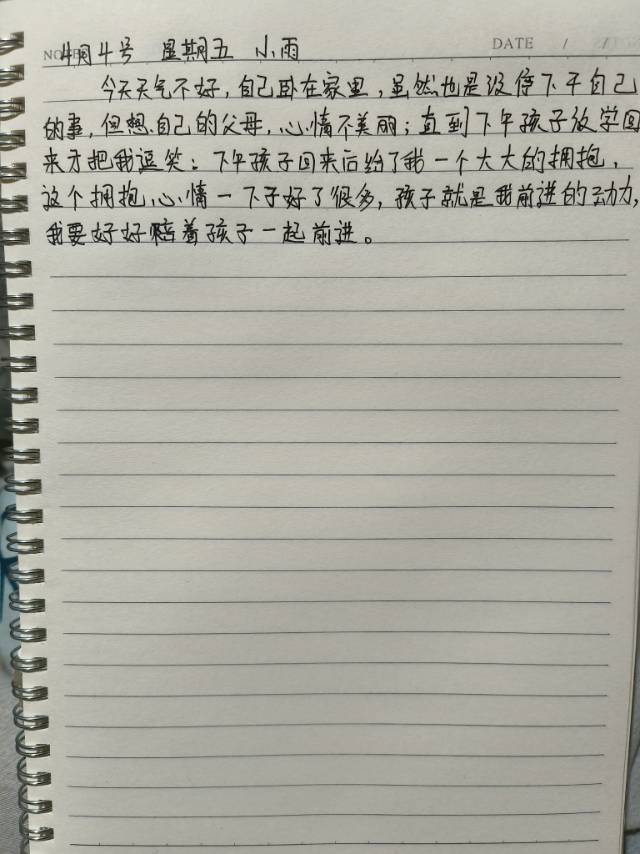 NO. 4月4号 星期五 小雨
DATE / /
今天天气不好，自己卧在家里，虽然也是没停下干自己
的事，但想自己的父母，心情不美丽；直到下午孩子放学回
来才把我逗笑：下午孩子回来后给了我一个大大的拥抱，
这个拥抱，心情一下子好了很多，孩子就是我前进的动力，
我要好好陪着孩子一起前进。